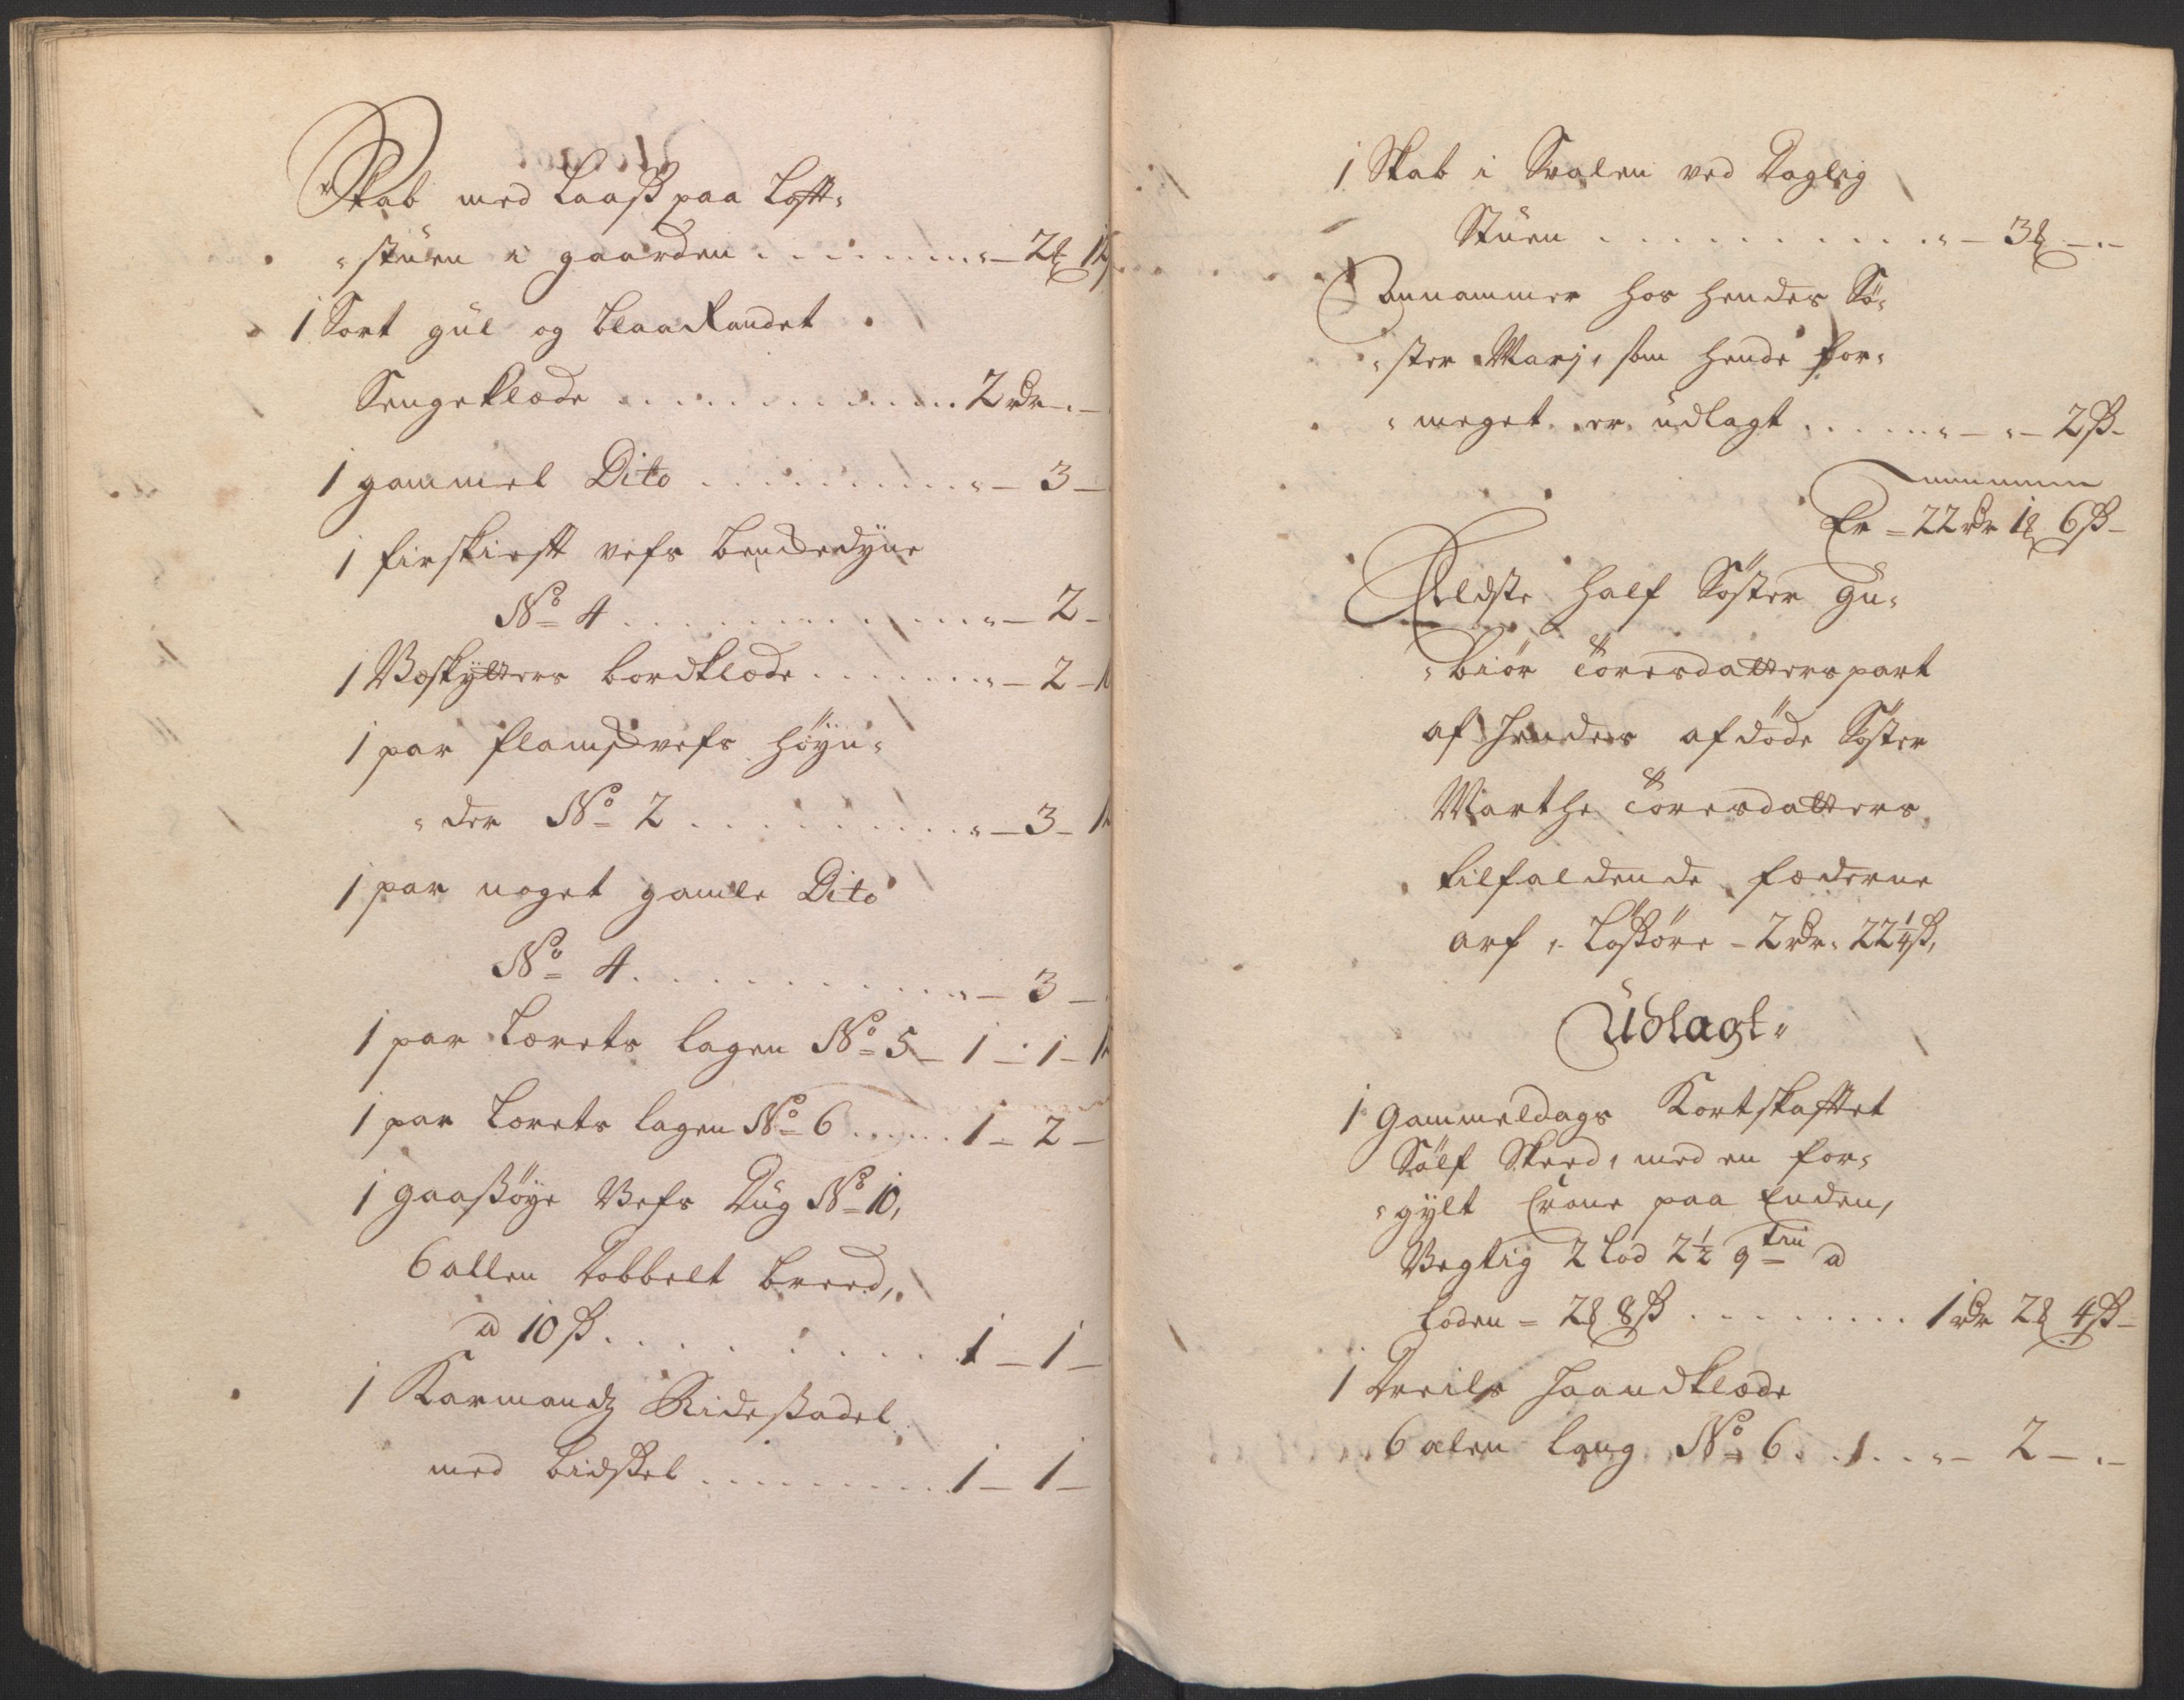 Skab med Laaß paa Loft-
stuen i gaarden . . . . . . . „ — 2 ort 12
1 Sort gul og blaa Randet
Sengeklæde . . . . . . . . . 2 rdr - . -
1 gammel Dito . . . . . . . . . . „ — 3 —
1 firskiefft vefs benckedyne
No 4 . . . . . . . . . . . . . „ — 2 -
1 Væskytters bordklæde . . . . . . . „ — 2 - 1
1 par flamsk vefs höyn-
der No 2 . . . . . . . . . . „ — 3 - 1
1 par noget gamle Dito
No 4 . . . . . . . . . . . „ — 3 —
1 par Lærets lagen No 5 - 1 - 1 - 1
1 par Lærets lagen No 6 . . . . . 1 - 2 —
1 gaaßöye Vefs Dug No 10,
6 allen dobbelt breed,
a 10 ß . . . . . . . . . 1 — 1 —
1 Karmandz Rideßadel
med bidßel . . . . . . . . . 1 — 1 —
1 Skab i Svalen ved Daglig
Stuen . . . . . . . . . . . . „ — 3 ort — . —
Annammer hos hendes Sö-
ster Marj, som hende for-
meget er udlagt . . . . . . „ — „ — 2 ß -
Er = 22 rdr 1 ort 6 ß -
Eldste half Söster Gu-
biör Töresdatters part
af hendes afdöde Söster
Marthe Töresdatters
tilfaldende fæderne
arf i Lößöre - 2 rdr 22 1/4 ß,
Udlagt„
1 Gammeldags Kortskafftet
Sölf Skeed, med en for-
gylt Crone paa Enden,
Vegtig 2 Lod 2 1/2 qtin a
Loden = 2 ort 8 ß . . . . . . . . 1 rdr 2 ort 4 ß -
1 Dreils Haandklæde
6 alen lang No 6 . . 1 . . „ - 2 - . -